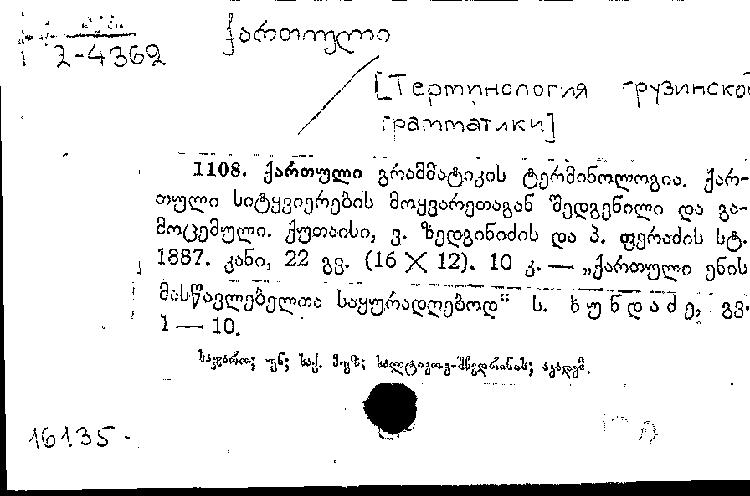 2-4369
ქართული
[Терминология грузинской
грамматики]
1108. ქართული გრამმატიკის ტერმინოლოგია. ქარ-
თული სიტყვიერების მოყვარეთაგან შედგენილი და გა-
მოცემული. ქუთაისი, ვ. ზედგინიძის და პ. ფერაძის სტ.
1887. კანი, 22 გვ. (16 X 12). 10 კ. — „ქართული ენის
მასწავლებელთა საყურადღებოდ“ ს. ხუნდაძე, გვ.
1 — 10.
საჯარო; უნ; საქ. მუზ; სალტიკოვ-შჩედრინის; აკადემ.
16135.